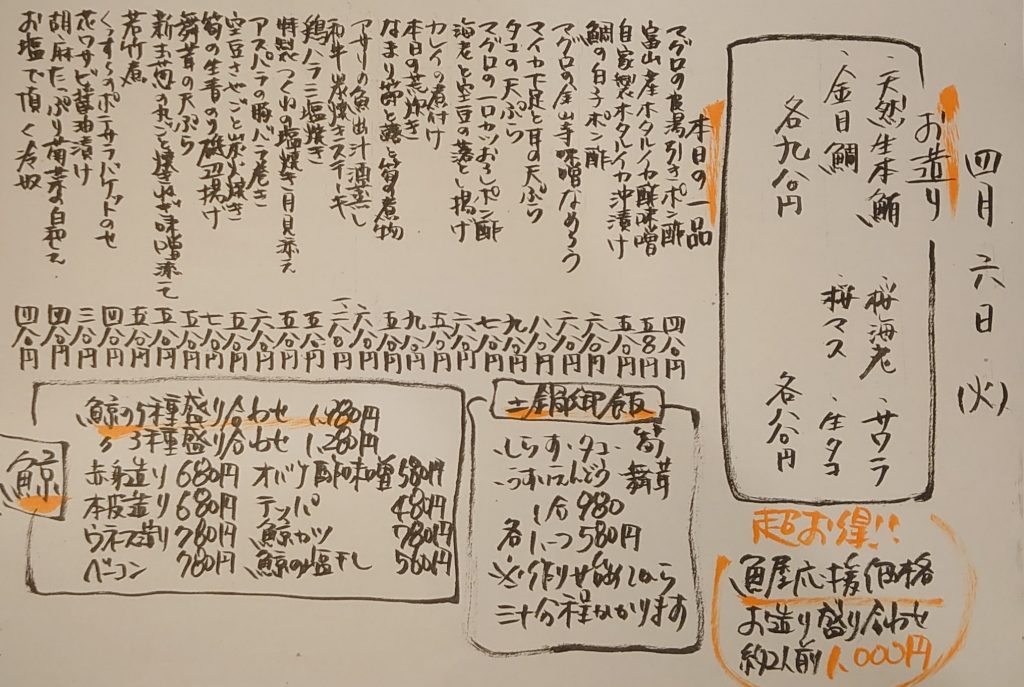 四月六日(火)
お造り
・天然生本鮪
・金目鯛
各九八〇円
・桜海老・サワラ
・桜マス・生タコ
各八八〇円
本日の一品
マグロの引きポン酢 四八〇円
富山産ホタルイカ酢味噌 五八〇円
自家製ホタルイカ沖漬け 五八〇円
鯛の白子ポン酢 六八〇円
マグロの金山寺味噌なめろう 六八〇円
マイカ下足と耳の天ぷら
タコの天ぷら
マグロの一口カツおろしポン酢
海老と空豆の落とし揚げ
カレイの煮付け
本日の荒炊き
なまり節と蕗と筍の煮物
アサリの魚出汁酒蒸し 六八〇円
和牛炭焼きステーキ 一、二八〇円
鶏ハラミ塩焼き 五八〇円
特製つくねの塩焼き月見添え 五八〇円
アスパラの豚バラ巻き 六八〇円
空豆さやごと炭火焼き 五八〇円
筍の生青のり磯辺揚げ 七八〇円
舞茸の天ぷら 五八〇円
新玉葱丸ごと味噌添え
若竹煮
ポテサラバゲットのせ
花ワサビ醤油漬け 三八〇円
胡麻たっぷり菊菜の白和え 四八〇円
お塩で頂く冷奴 四八〇円
鯨
鯨の5種盛り合わせ 1,980円
〃3種盛り合わせ 1,280円
赤身造り 680円 オバケ酢味噌 580円
本皮造り 680円 テッパ 480円
ウネス造り 780円 鯨カツ 780円
ベーコン 780円 鯨の塩干し 580円
土鍋御飯
しらす・タコ・筍
うすいえんどう 舞茸
1合 980
各1人前 580円
※作り始めてから
三十分程かかります
超お得!!
魚屋応援価格
お造り盛り合わせ
約2人前 1,000円